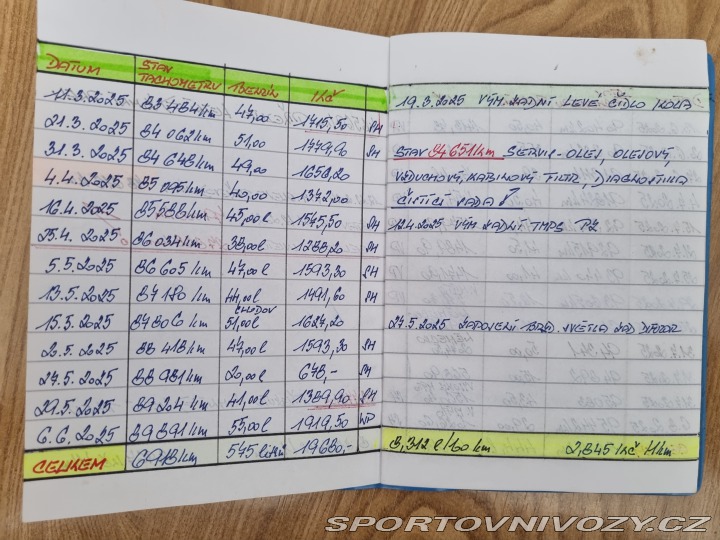 DATUM STAV TACHOMETRU BENZÍN KČ
11.3.2025 83484km 47,00 1415,50 PH
21.3.2025 84062km 51,00 1779,90 PH
31.3.2025 84648km 49,00 1658,20
4.4.2025 85095km 40,00 1372,00
16.4.2025 85588km 45,00l 1545,50 PH
25.4.2025 86034km 38,00l 1288,20 PH
5.5.2025 86605km 47,00l 1593,30 PH
13.5.2025 87180km 44,00l 1491,60 PH
15.5.2025 87806km CHODOV 51,00l 1627,20
20.5.2025 88418km 47,00l 1593,30 PH
27.5.2025 88981km 20,00l 678,-
29.5.2025 89204km 41,00l 1389,90 PH
6.6.2025 89891km 55,00l 1919,50 WP
CELKEM 6918km 575 litrů 19680,-
19.3.2025 VÝM. ZADNÍ LEVÉ ČIDLO KOLA
STAV 84651km SERVIS - OLEJ, OLEJOVÝ
VZDUCHOVÝ, KABINOVÝ FILTR, DIAGNOSTIKA
ČISTÍCÍ SADA!
12.4.2025 VÝM ZADNÍ TMPS PZ
27.5.2025 ZAPOJENÍ BRZD. SVĚTLA NAD DIFUZOR
8,312 l/100 km 2,845 Kč/1km
SPORTOVNIVOZY.CZ